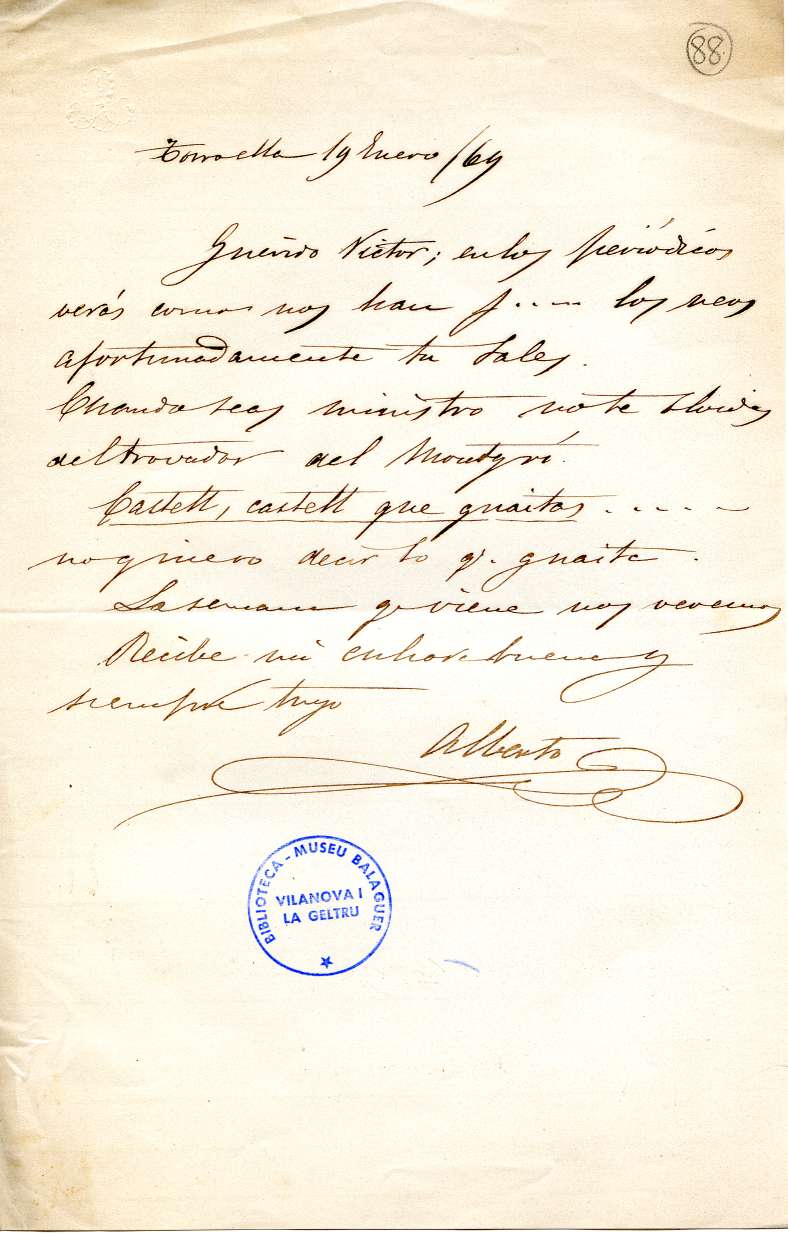 88.
Torroella 19 Enero /69
Querido Victor; en los periódicos
verás como nos han j.... los neos
afortunadamente tu sales.
Cuando seas ministro no te olvides
del trovador del Montgrí.
Castell, castell que guaitas ......
no quiero decir lo q. guaita.
La semana q. viene nos veremos
Recibe mi enhorabuena y
siempre tuyo
Alberto
BIBLIOTECA - MUSEU BALAGUER
VILANOVA I
LA GELTRU